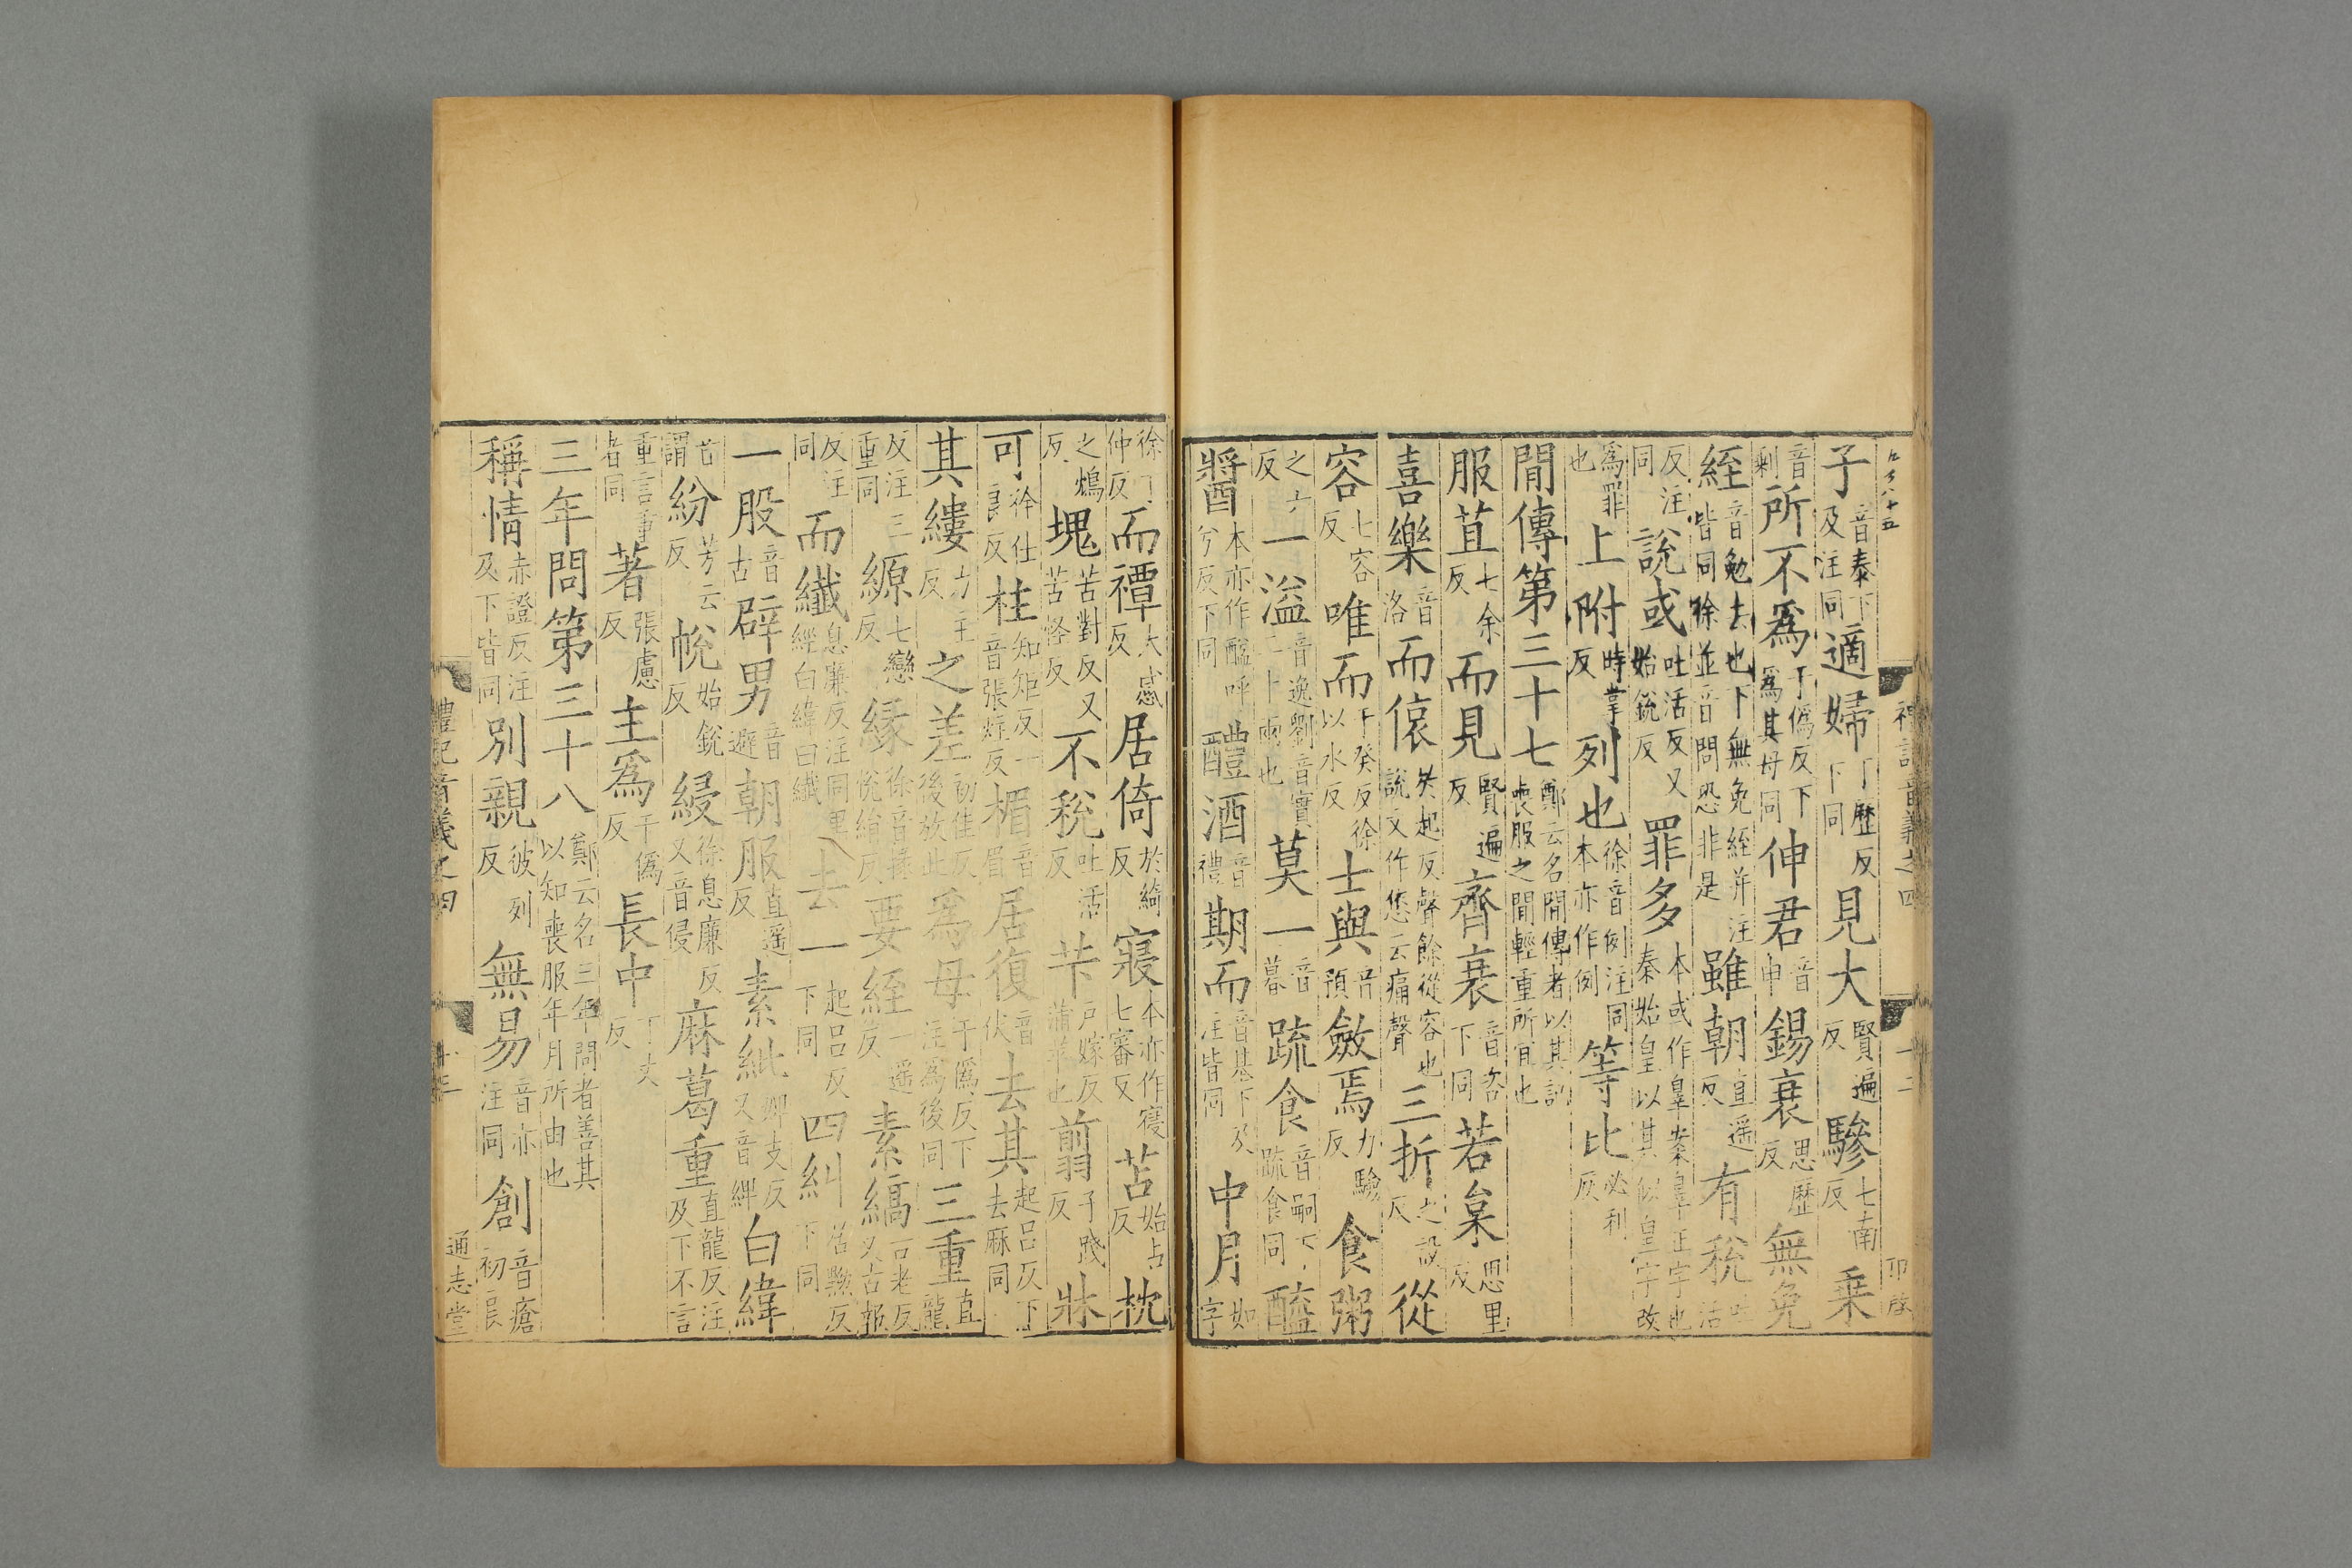 子音泰下及注同適婦丁歷反下同見大賢遍反驂七南反乘
音剩所不為于偽反下為其母同伸君音申錫衰思歷反無免
絰音勉去也下無免絰并注皆同徐並音問恐非是雖朝直遥反有稅吐活
反注同說或吐活反又始銳反罪多本或作辠案辠正字也秦始皇以其似皇字改
為罪也上附時掌反列也徐音例注同本亦作例等比必利反
間傳第三十七鄭云名間傳者以其記喪服之間輕重所宜也
服苴七余反而見賢遍反齊衰音咨下同若枲思里反
喜樂音洛而偯於起反聲餘從容也說文作㥋云痛聲三折之設反從
容七容反唯而于癸反徐以水反士與音預斂焉力驗反食粥
之六反一溢音逸劉音實二十兩也莫一音暮疏食音嗣下疏食同醯
醬本亦作醯呼兮反下同醴酒音禮期而音基下及注皆同中月如字
徐丁仲反而禫大感反居倚於綺反寢本亦作寑七審反苫始占反枕
之鴆反塊苦對反又苦怪反不稅吐活反苄戶嫁反蒲苹也翦子踐反牀
可徐仕良反柱知矩反一音張炷反楣音眉居復音伏去其起呂反下去麻同
其縷力主反之差初佳反後放此為母于偽反下注為後同三重直龍
反注三重同縓七戀反緣徐音掾悅絹反要絰一遥反素縞古老反又古報
反注同而纖息廉反注同黑經白緯曰纖去一起呂反下同四糾居黝反下同
一股音古辟男音避朝服直遥反素紕婢支反又音綼白緯
音謂紛芳云反帨始銳反綅徐息廉反又音侵麻葛重直龍反注及下不言
重言重者同著張慮反主為于偽反長中丁丈反
三年問第三十八鄭云名三年問者善其以知喪服年月所由也
稱情赤證反注及下皆同別親彼列反無易音亦注同創音瘡初良
禮記音義之四
十二
禮記音義之四
通志堂